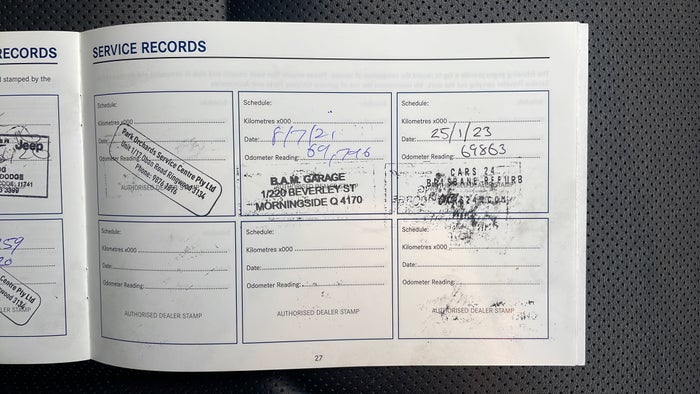 RECORDS
stamped by the
Jeep
DODGE
Centre Pty Ltd
SERVICE RECORDS
Schedule:
Kilometres x000
Date:
Odometer Reading:
Park Orchards Service Centre Pty Ltd
Ringwood 3134
Schedule:
Kilometres x000
Date: 8/7/21
Odometer Reading:
B.A.M. GARAGE
1/220 BEVERLEY ST
MORNINGSIDE Q 4170
Schedule:
Kilometres x000
Date: 25/1/23
Odometer Reading: 69863
CARS 24
BRISBANE REFURB
Schedule:
Kilometres x000
Date:
Odometer Reading:
AUTHORISED DEALER STAMP
Schedule:
Kilometres x000
Date:
Odometer Reading:
AUTHORISED DEALER STAMP
Schedule:
Kilometres x000
Date:
Odometer Reading:
AUTHORISED DEALER STAMP
27